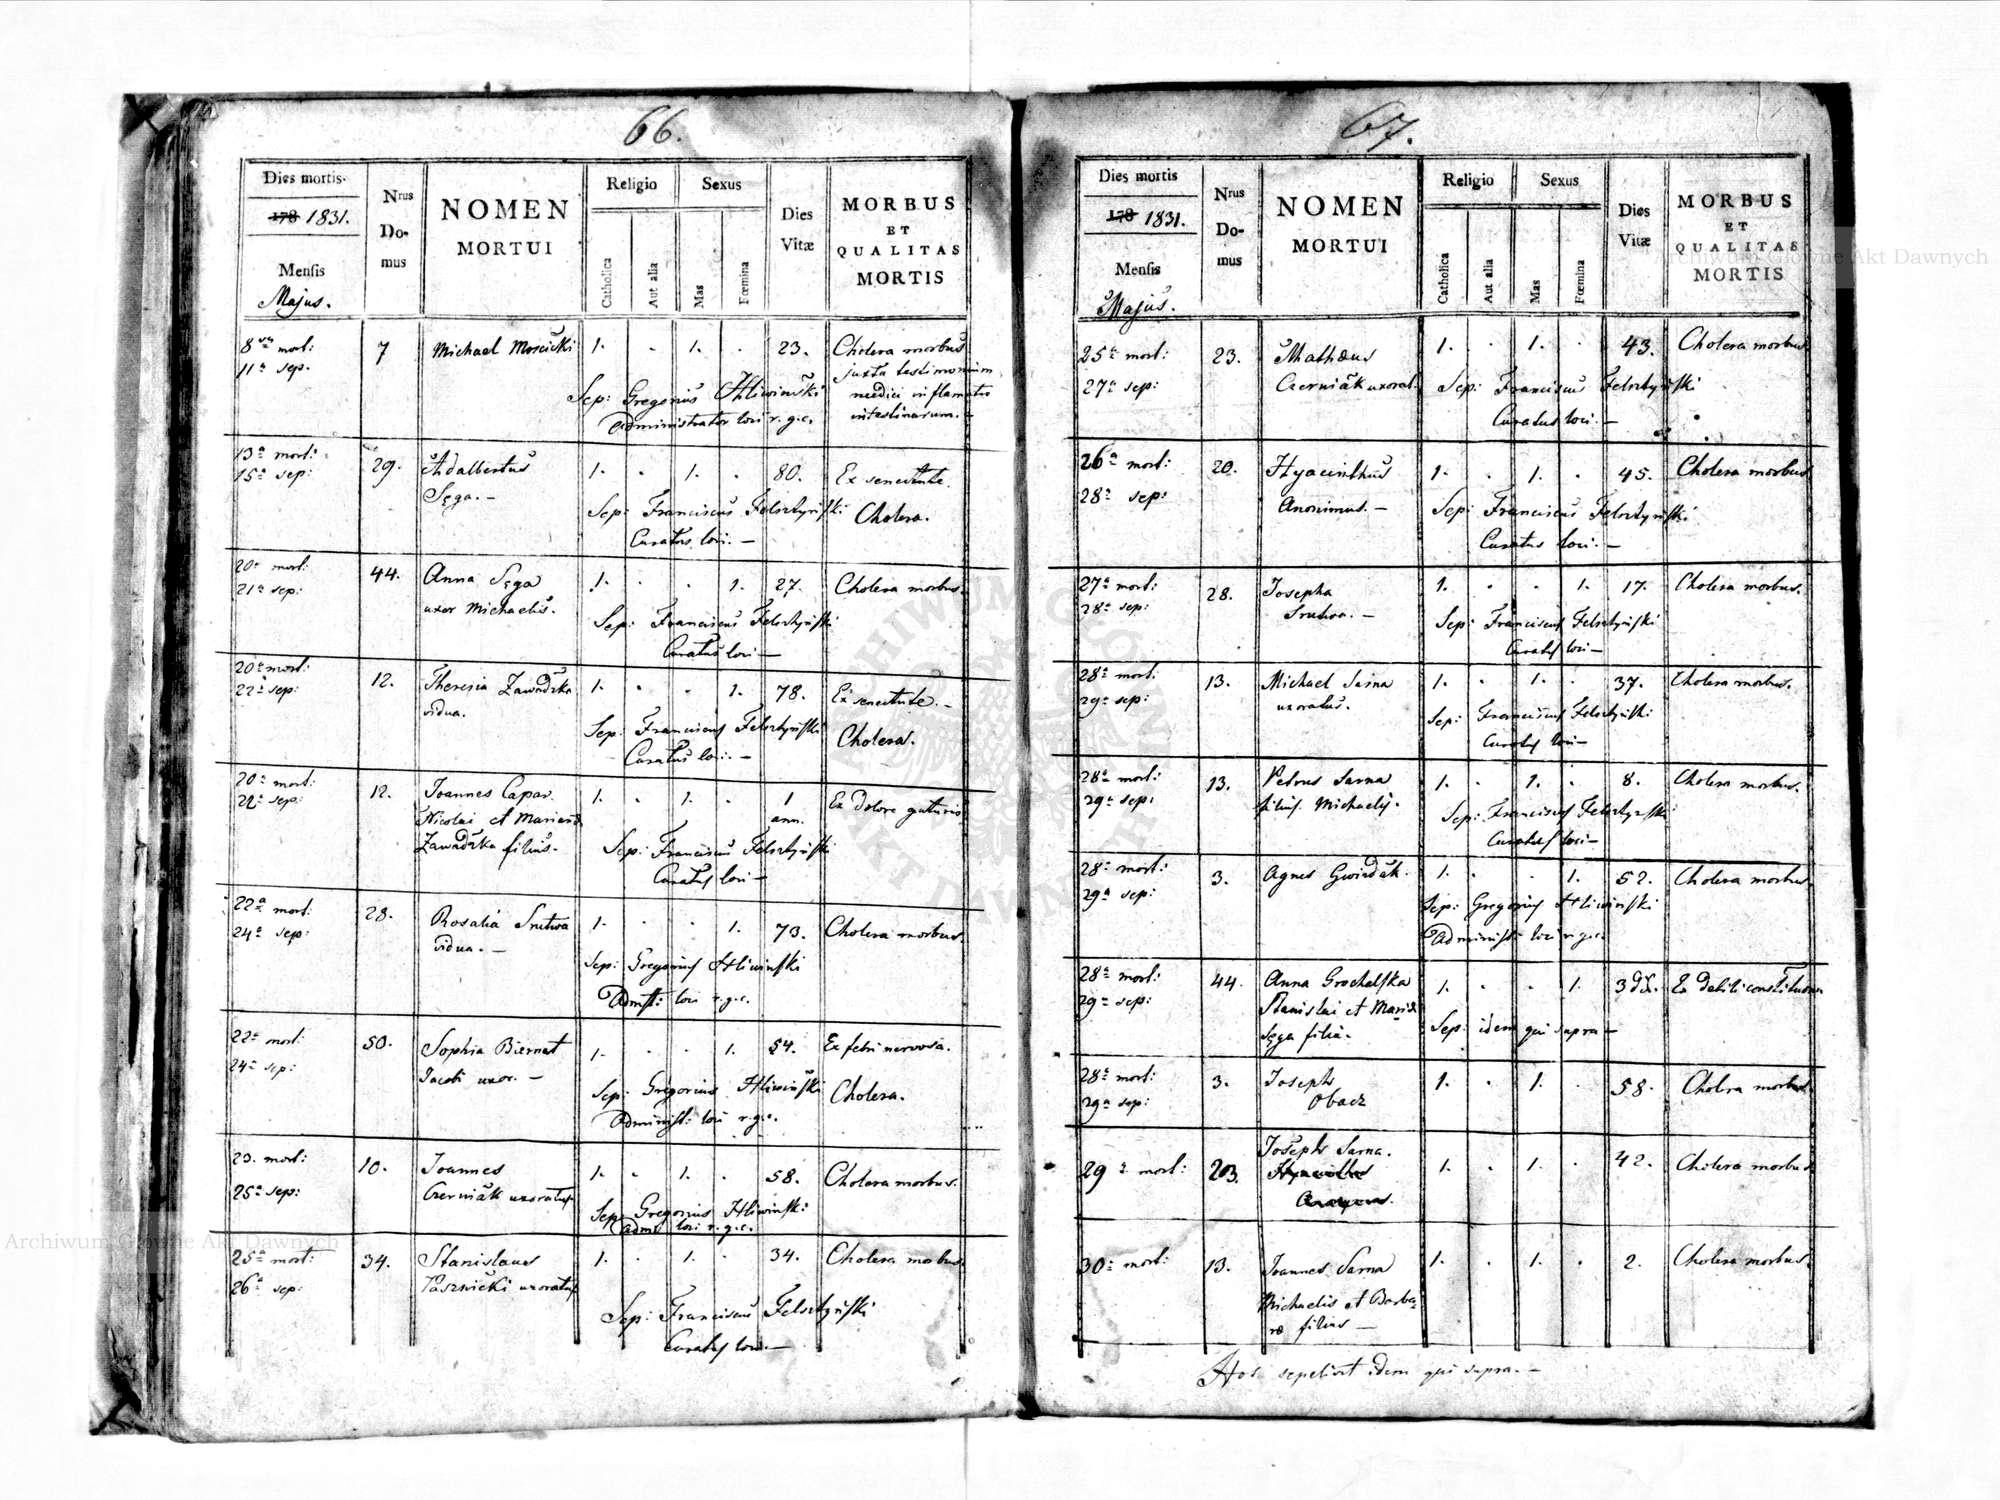 66.
Dies mortis.
178 1831.
Mensis
Majus.
Nrus
Do-
mus
NOMEN
MORTUI
Religio
Catholica
Aut alia
Sexus
Mas
Fœmina
Dies
Vitæ
MORBUS
ET
QUALITAS
MORTIS
8va mort: 7 Michael Moscicki 1. . 1. . 23. Cholera morbus
11a sep. juxta testimonium
Sep: Gregorius Hliwinski medici inflamatio
Administrator loci r.g.c. intestinorum. -
13a mort: 29. Adalbertus 1. . 1. . 80. Ex senectute.
15a sep: Sęga. -
Sep: Franciscus Felsztyński Cholera.
Curatus loci. —
20a mort: 44. Anna Sęga 1. . . 1. 27. Cholera morbus.
21a sep: uxor Michaelis.
Sep: Franciscus Felsztyński
Curatus loci —
20a mort: 12. Theresia Zawadzka 1. . . 1. 78. Ex senectute. -
22a sep: vidua.
Sep: Franciscus Felsztyński Cholera.
Curatus loci. —
20a mort: 12. Joannes Capar. 1. . 1. . 1 Ex dolore guturis
22a sep: Nicolai et Mariannæ ann.
Zawadzka filius.
Sep: Franciscus Felsztyński
Curatus loci —
22a mort: 28. Rosalia Srutwa 1. . . 1. 73. Cholera morbus.
24a sep: vidua. -
Sep: Gregorius Hliwinski
Admst: loci r.g.c.
22a mort: 50. Sophia Biernat 1. . . 1. 54. Ex febri nervosa.
24a sep: Jacobi uxor. —
Sep: Gregorius Hliwiński Cholera.
Administ: loci r.g.c.
23. mort: 10. Joannes 1. . 1. . 58. Cholera morbus.
25a sep: Czerniak uxoratus
Sep: Gregorius Hliwinski
Adms loci r.g.c.
25a mort: 34. Stanislaus 1. . 1. . 34. Cholera morbus.
26a sep: Pasznicki uxoratus
Sep: Franciscus Felsztyński
Curatus loci. —
67.
Dies mortis
178 1831.
Mensis
Majus.
Nrus
Do-
mus
NOMEN
MORTUI
Religio
Catholica
Aut alia
Sexus
Mas
Fœmina
Dies
Vitæ
MORBUS
ET
QUALITAS
MORTIS
25a mort: 23. Mathæus 1. . 1. . 43. Cholera morbus
27a sep: Czerniak uxorat.
Sep: Franciscus Felsztyński
Curatus loci. —
26a mort: 20. Hyacinthus 1. . 1. . 45. Cholera morbus
28a sep: Anonimus. —
Sep: Franciscus Felsztyński
Curatus loci. —
27a mort: 28. Josepha 1. . . 1. 17. Cholera morbus.
28a sep: Srutwa. —
Sep: Franciscus Felsztyński
Curatus loci —
28a mort: 13. Michael Sarna 1. . 1. . 37. Cholera morbus.
29a sep: uxoratus.
Sep: Franciscus Felsztyński
Curatus loci —
28a mort: 13. Petrus Sarna 1. . 1. . 8. Cholera morbus.
29a sep: filius Michaelis.
Sep: Franciscus Felsztyński
Curatus loci —
28a mort: 3. Agnes Gwizdak. 1. . . 1. 52. Cholera morbus.
29a sep:
Sep: Gregorius Hliwinski
Administ: loci r.g.c.
28a mort: 44. Anna Grochalska 1. . . 1. Ex debili constitutione
29a sep: Stanislai et Mariæ
Sęga filia.
Sep: idem qui supra —
28a mort: 3. Joseph 1. . 1. . 58. Cholera morbus
29a sep: Obacz
29a mort: 203. Joseph Sarna. 1. . 1. . 42. Cholera morbus
30a mort: 13. Joannes Sarna 1. . 1. . 2. Cholera morbus.
Michaelis et Barba-
ræ filius —
Hos sepelivit idem qui supra. —
Archiwum Główne Akt Dawnych
Archiwum Główne Akt Dawnych
ARCHIWUM GŁÓWNE AKT DAWNYCH